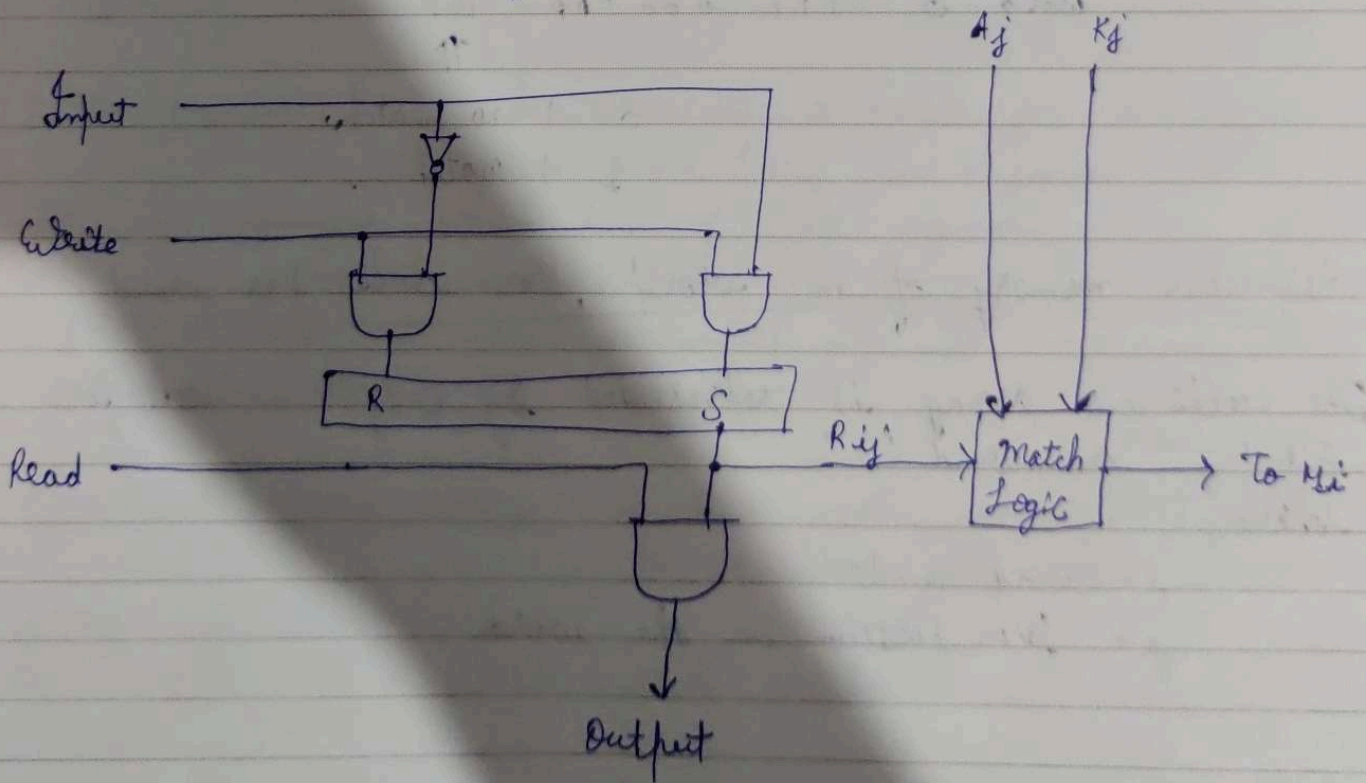 Aj Kj
Input
Write
R S
Rij
Match
Logic
To Mi
Read
Output